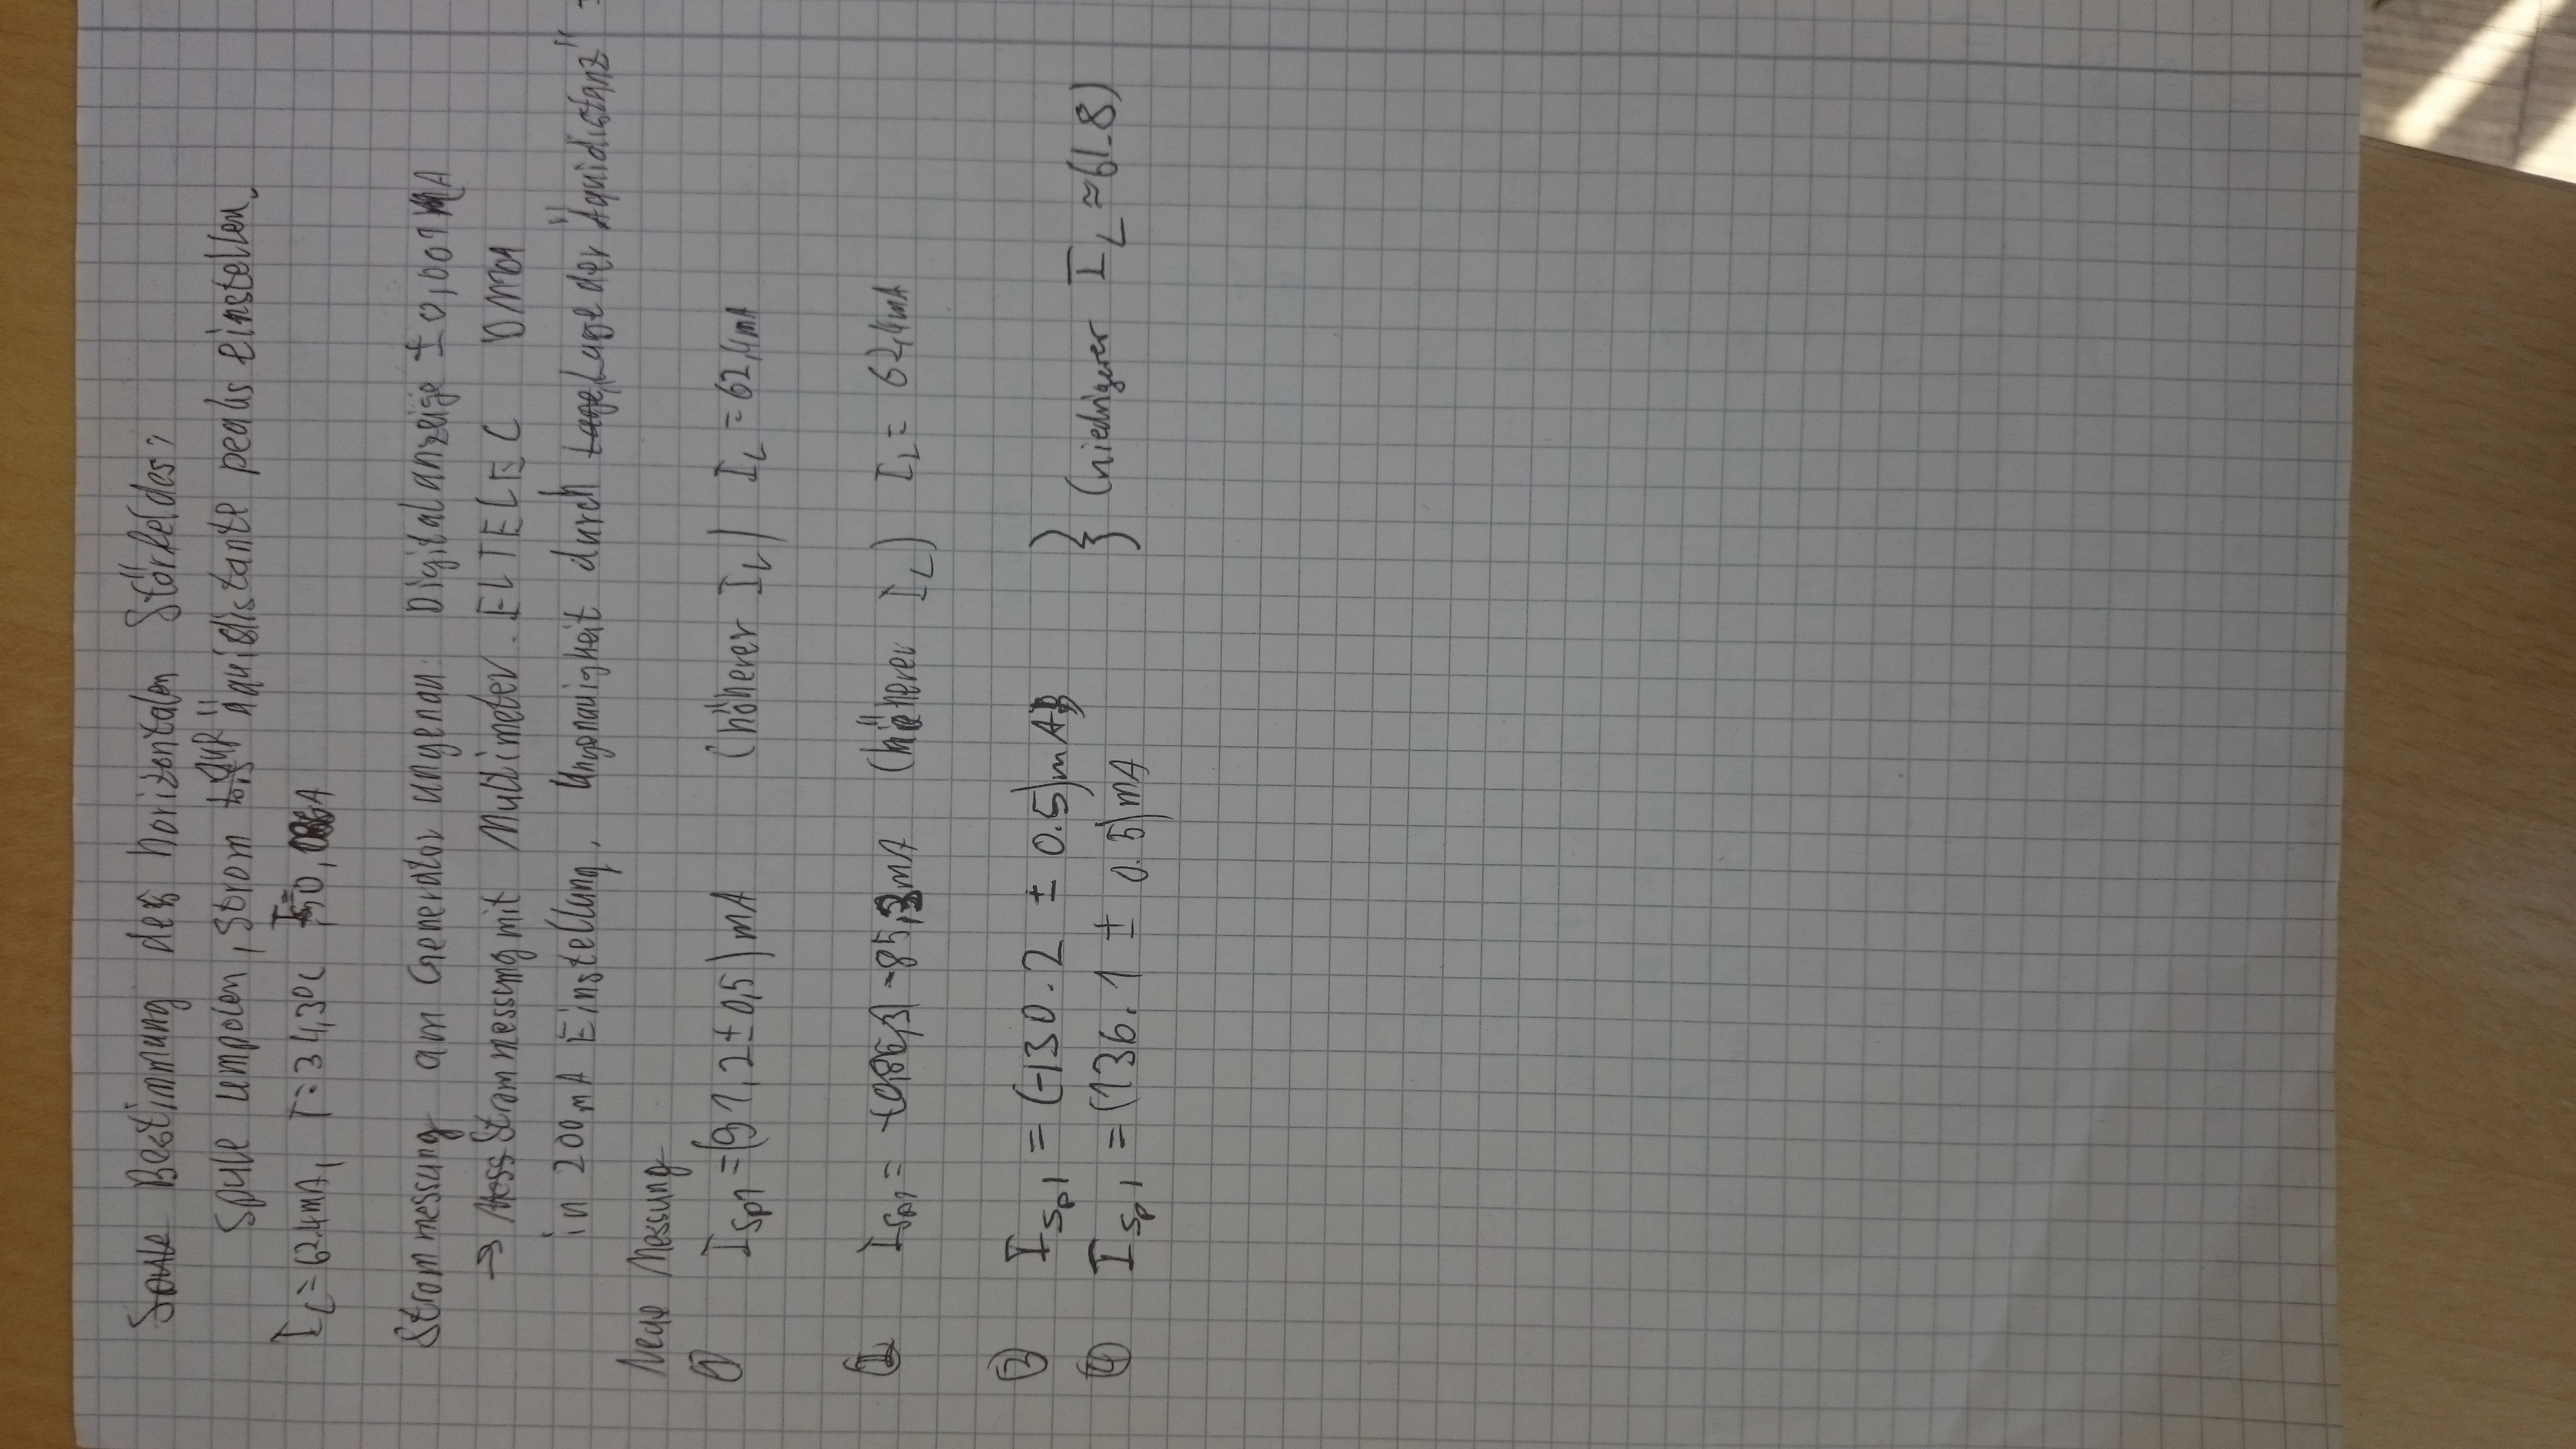 Bestimmung des horizontalen Störfeldes:
Spule umpolen, Strom auf äquidistante peaks einstellen.
I_L = 62.4mA, T = 34,3°C I = 0, A
Strommessung am Generator ungenau. Digitalanzeige ± 0,001 A
→ Strommessung mit Multimeter. ELTELEC
in 200mA Einstellung. Ungenauigkeit durch Lage der "Äquidistanz"
Neue Messung
① I_Sp1 = (91,2 ± 0,5) mA (höherer I_L) I_L = 62,4mA
② I_Sp1 = -85,3mA (höherer I_L) I_L = 62,4mA
③ I_Sp1 = (-130.2 ± 0.5) mA
④ I_Sp1 = (136.1 ± 0.5) mA } (niedrigerer I_L ≈ 61.8)